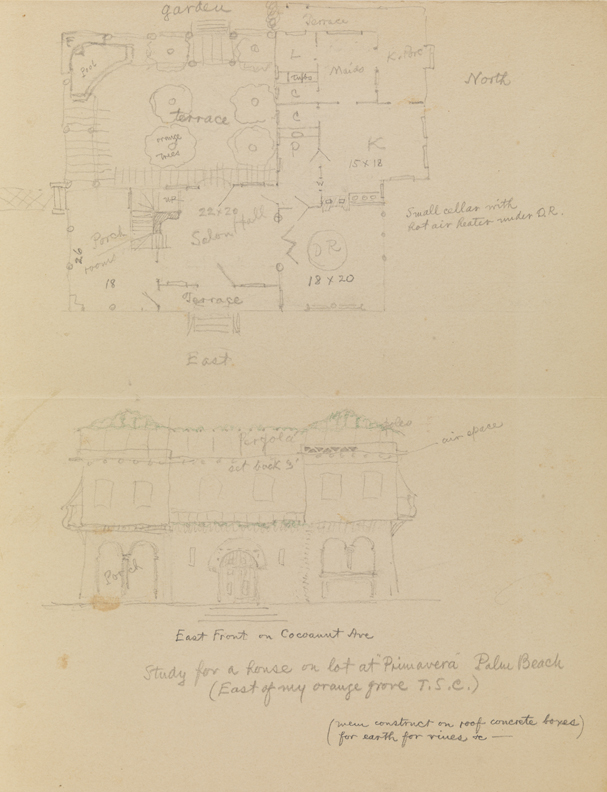 garden
Terrace
F
Pool
L
Maids
K. Porch
North
C
terrace
C
orange
trees
P
K
15 x 18
up
22 x 20
Small cellar with
Hot air heater under D.R.
Porch
room
Salon Hall
26
DR
18
18 x 20
Terrace
East.
Pergola
air space
set back 3'
Porch
East Front on Cocoanut Ave
Study for a house on lot at "Primavera" Palm Beach
(East of my orange grove T.S.C.)
(mem construct on roof concrete boxes)
for earth for vines &c —